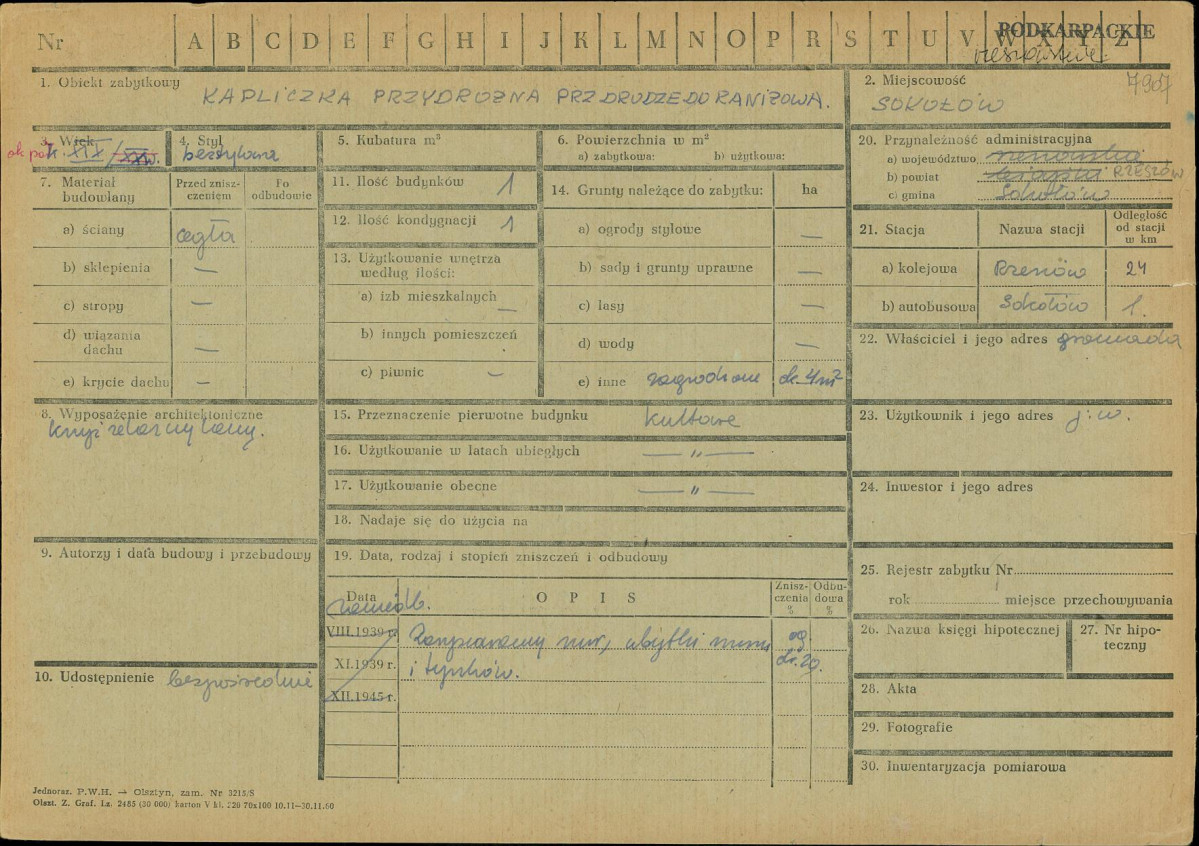 Nr A B C D E F G H I J K L M N O P R S T U V W X Y Z
PODKARPACKIE
rzeszowskie
1. Obiekt zabytkowy
KAPLICZKA PRZYDROŻNA PRZ DRODZE DO RANIŻOWA.
2. Miejscowość 7907
SOKOŁÓW
3. Wiek
ok poł. XIX/XXw.
4. Styl
bezstylowa
5. Kubatura m³
6. Powierzchnia w m²
a) zabytkowa: b) użytkowa:
7. Materiał budowlany
Przed zniszczeniem
Po odbudowie
a) ściany cegła
b) sklepienia —
c) stropy —
d) wiązania dachu —
e) krycie dachu —
8. Wyposażenie architektoniczne
9. Autorzy i data budowy i przebudowy
10. Udostępnienie bezpośrednie
11. Ilość budynków 1
12. Ilość kondygnacji 1
13. Użytkowanie wnętrza według ilości:
a) izb mieszkalnych —
b) innych pomieszczeń
c) piwnic —
14. Grunty należące do zabytku: ha
a) ogrody stylowe —
b) sady i grunty uprawne —
c) lasy —
d) wody —
e) inne zagrodzone ok. 4m²
15. Przeznaczenie pierwotne budynku Kultowe
16. Użytkowanie w latach ubiegłych — " —
17. Użytkowanie obecne — " —
18. Nadaje się do użycia na
19. Data, rodzaj i stopień zniszczeń i odbudowy
Data
OPIS
Zniszczenia %
Odbudowa %
VIII.1939 r. mur, ubytki muru
XI.1939 r. i tynków. ok. 20
XII.1945 r.
20. Przynależność administracyjna
a) województwo rzeszowskie
b) powiat RZESZÓW
c) gmina Sokołów
21. Stacja
Nazwa stacji
Odległość od stacji w km
a) kolejowa Rzeszów 24
b) autobusowa Sokołów 1.
22. Właściciel i jego adres gromada
23. Użytkownik i jego adres j.w.
24. Inwestor i jego adres
25. Rejestr zabytku Nr
rok miejsce przechowywania
26. Nazwa księgi hipotecznej
27. Nr hipoteczny
28. Akta
29. Fotografie
30. Inwentaryzacja pomiarowa
Jednoraz. P.W.H. — Olsztyn, zam. Nr 3215/S
Olszt. Z. Graf. Lz. 2455 (30 000) karton V kl. 220 70x100 10.11—30.11.60